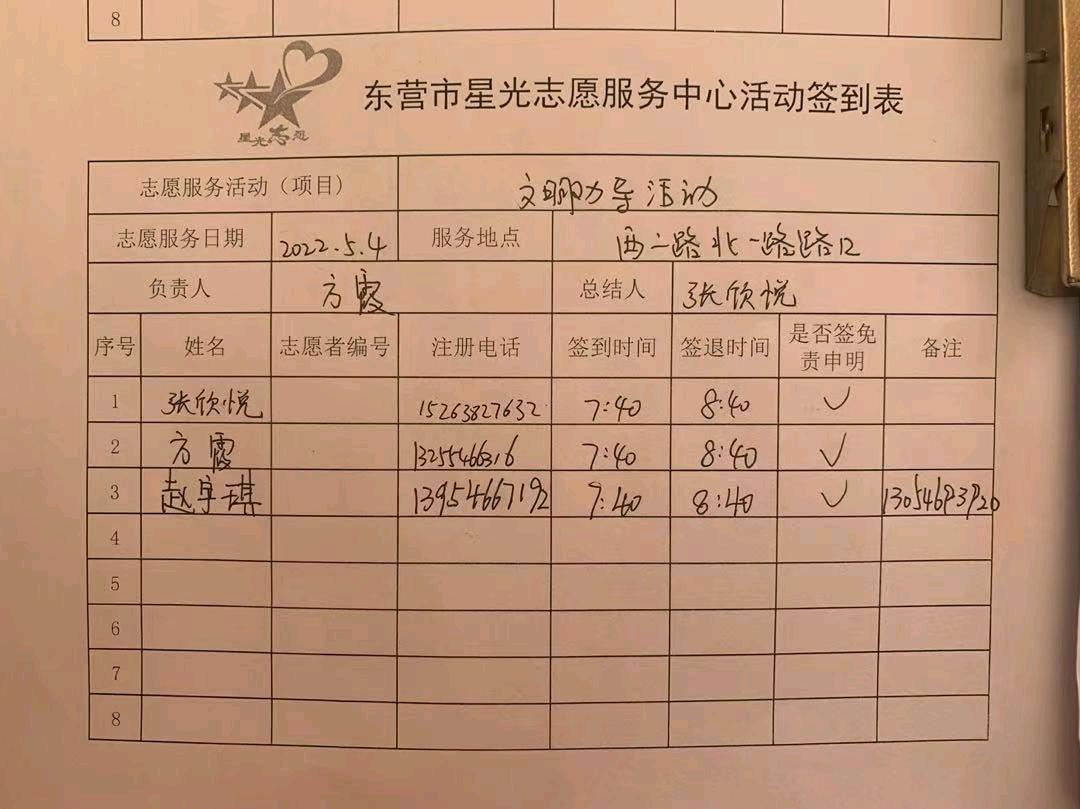 8
星光志愿
东营市星光志愿服务中心活动签到表
志愿服务活动（项目） 文明劝导活动
志愿服务日期 2022.5.4 服务地点 西二路北一路路口
负责人 方霞 总结人 张欣悦
序号 姓名 志愿者编号 注册电话 签到时间 签退时间 是否签免责申明 备注
1 张欣悦 15263827632 7:40 8:40 ✓
2 方霞 13255466316 7:40 8:40 ✓
3 赵宇琪 13954667192 7:40 8:40 ✓
4
5
6
7
8